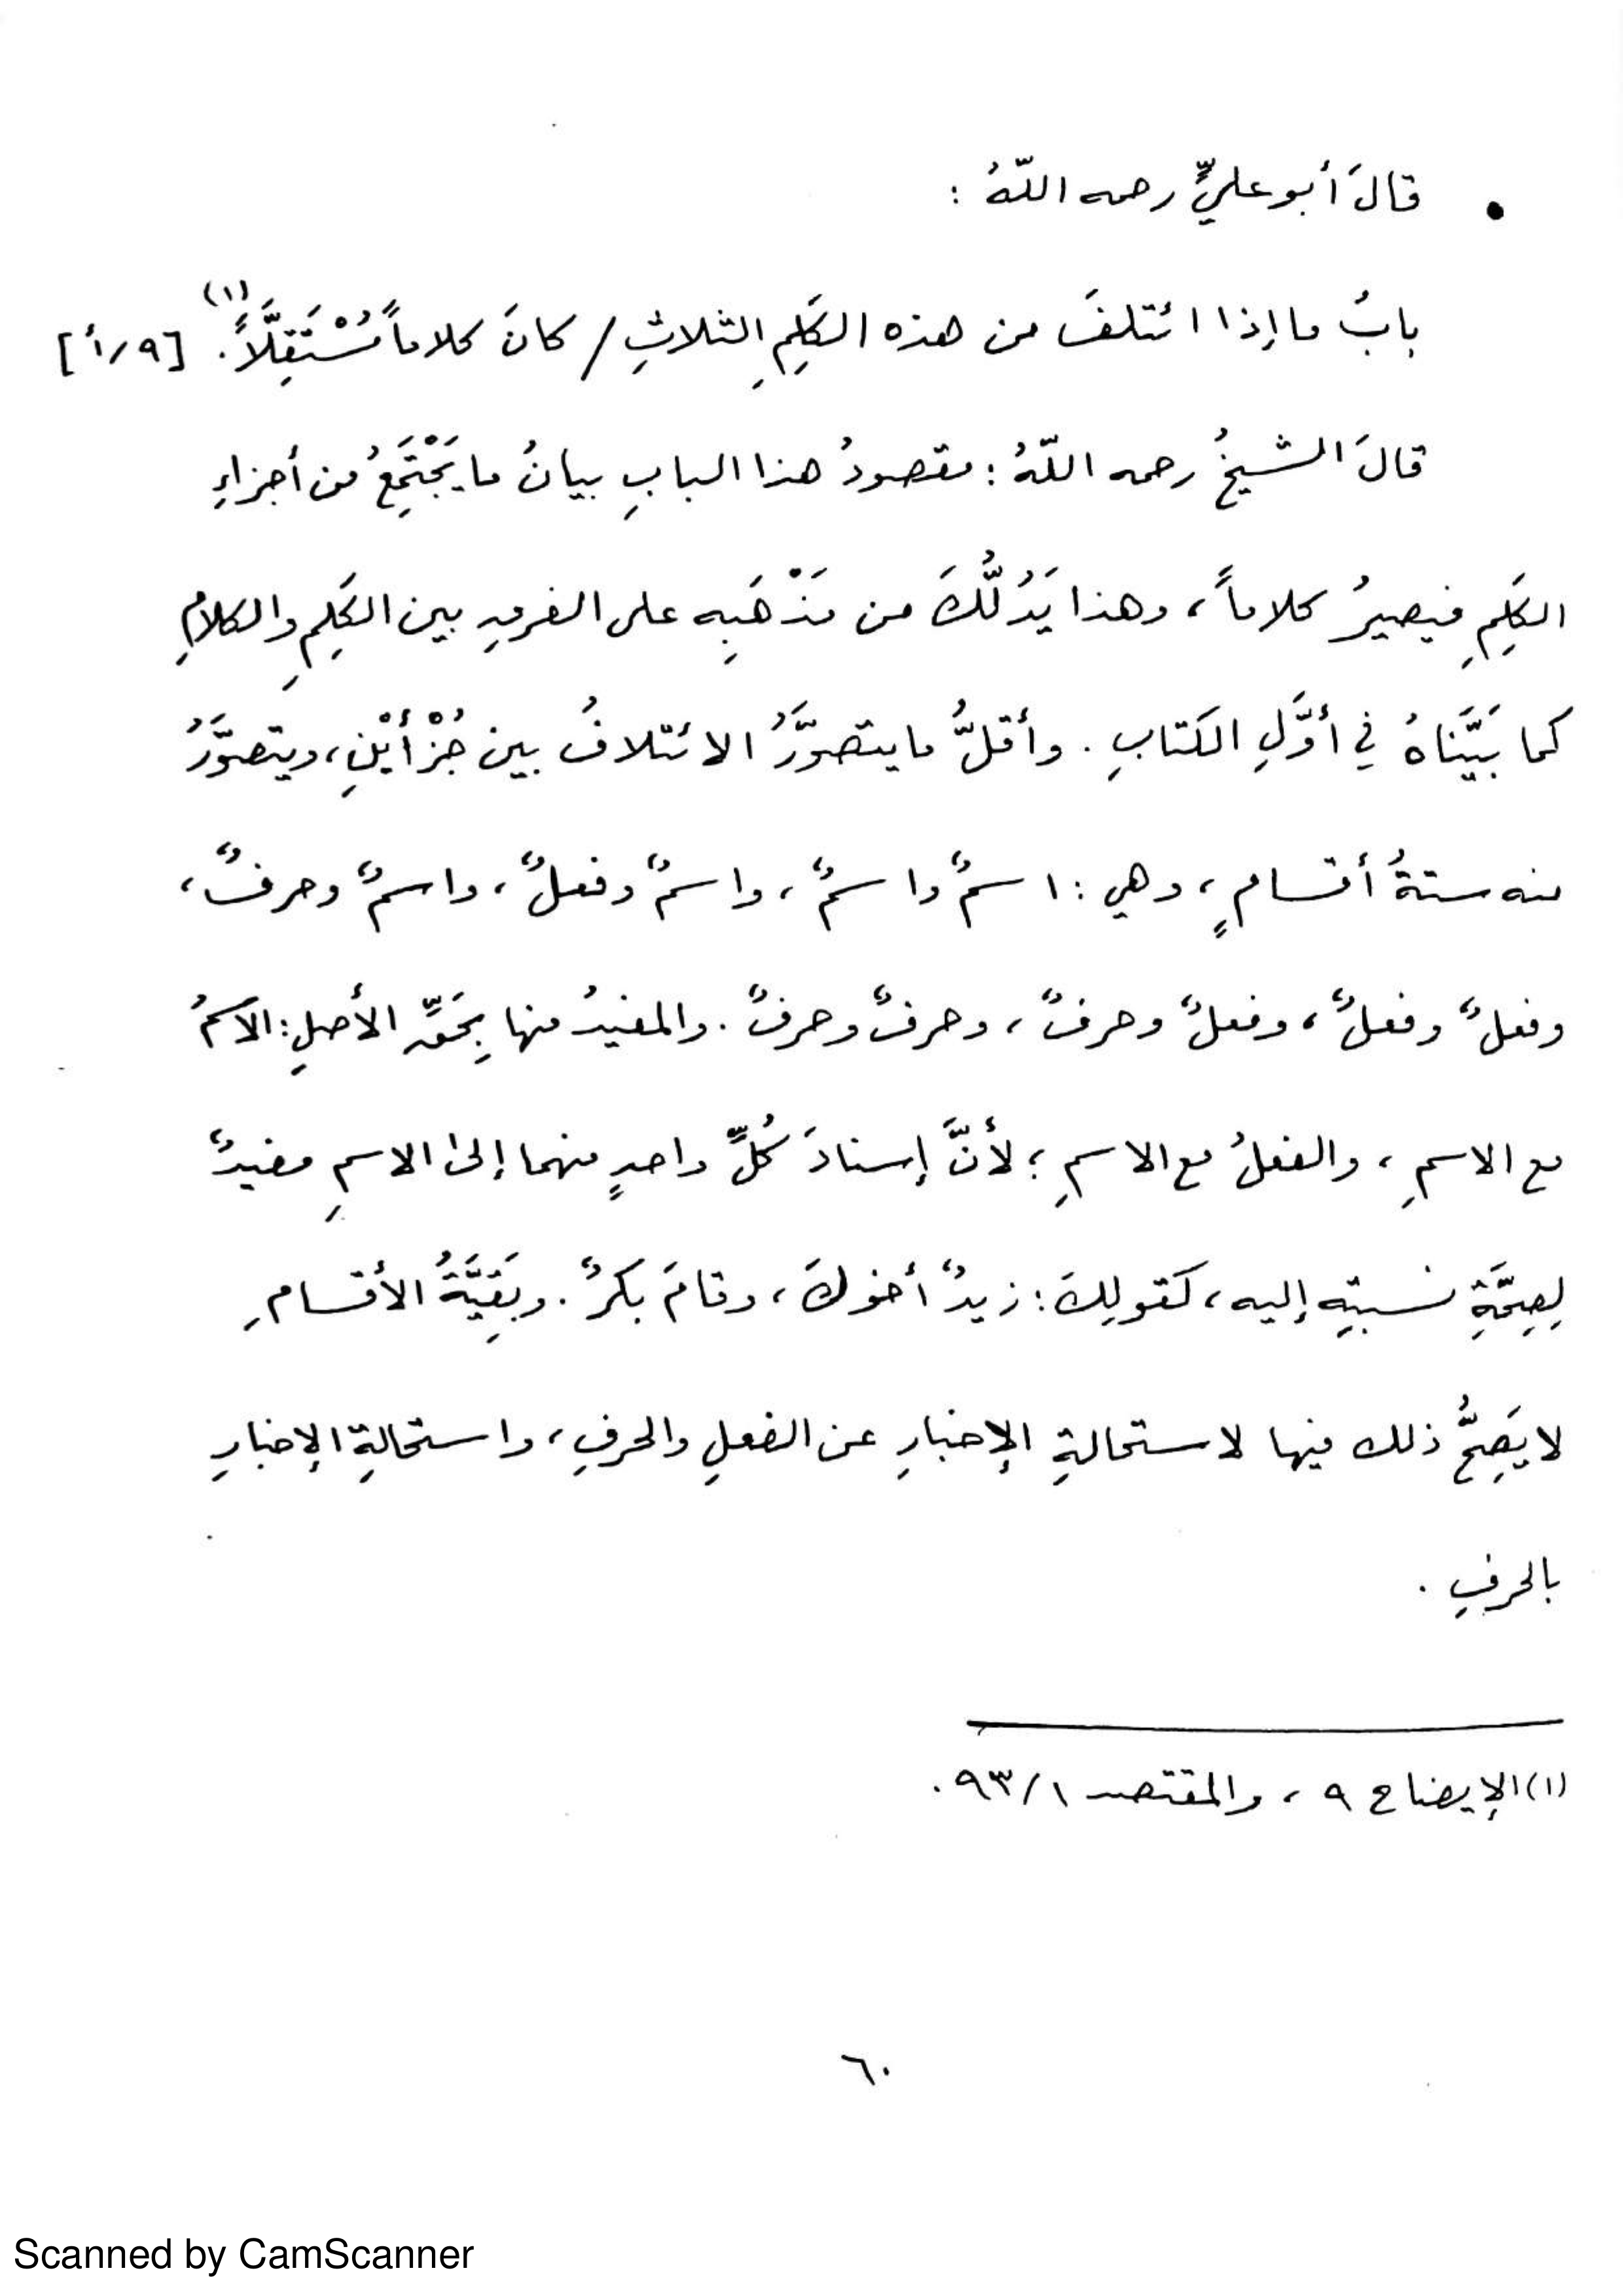 • قالَ أبو عليٍّ رحمه اللّهُ :
بابُ ما إذا ائتلفَ من هذه الكَلِمِ الثلاثِ / كانَ كلاماً مُسْتَقِلَّاً (١). [٩/أ]
قالَ الشيخُ رحمه اللّهُ : مقصودُ هذا البابِ بيانُ ما يَجْتَمِعُ من أجزاءِ
الكَلِمِ فيصيرُ كلاماً ، وهذا يَدُلُّكَ من مَذْهَبِه على الفرقِ بين الكَلِمِ والكلامِ
كما بَيَّنَاهُ في أوَّلِ الكتابِ . وأقلُّ ما يتصوَّرُ الائتلافُ بين جُزْأَيْنِ ، ويتصوَّرُ
منه ستةُ أقسامٍ ، وهي : اسمٌ واسمٌ ، واسمٌ وفعلٌ ، واسمٌ وحرفٌ ،
وفعلٌ وفعلٌ ، وفعلٌ وحرفٌ ، وحرفٌ وحرفٌ . والمفيدُ منها بِحَقِّ الأصلِ : الاسمُ
مع الاسمِ ، والفعلُ مع الاسمِ ؛ لأنَّ إسنادَ كُلِّ واحدٍ منهما إلىٰ الاسمِ مفيدٌ
لِصِحَّةِ نسبتِه إليه ، كَقولِكَ : زيدٌ أخوكَ ، وقامَ بكرٌ . وبَقِيَّةُ الأقسامِ
لا يَصِحُّ ذلك فيها لاستحالةِ الإخبارِ عن الفعلِ والحرفِ ، واستحالةِ الإخبارِ
بالحرفِ .
(١) الإيضاح ٩ ، والمقتصد ٩٣/١ .
٦٠
Scanned by CamScanner